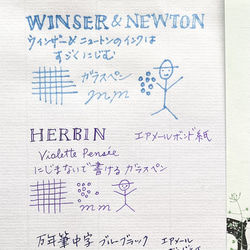 WINSER & NEWTON
ウィンザー&ニュートンのインクは
すごくにじむ
ガラスペン
mm
HERBIN エアメールボンド紙
Violette Pensée
にじまないで書ける ガラスペン
mm
万年筆中字 ブルーブラック エアメール